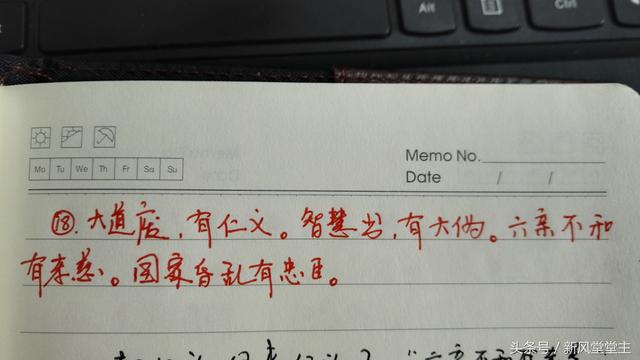 Alt
Ctrl
Memo No.
Mo Tu We Th Fr Sa Su
Date / /
⑱.大道废,有仁义。智慧出,有大伪。六亲不和
有孝慈。国家昏乱有忠臣。
头条号/新风堂堂主